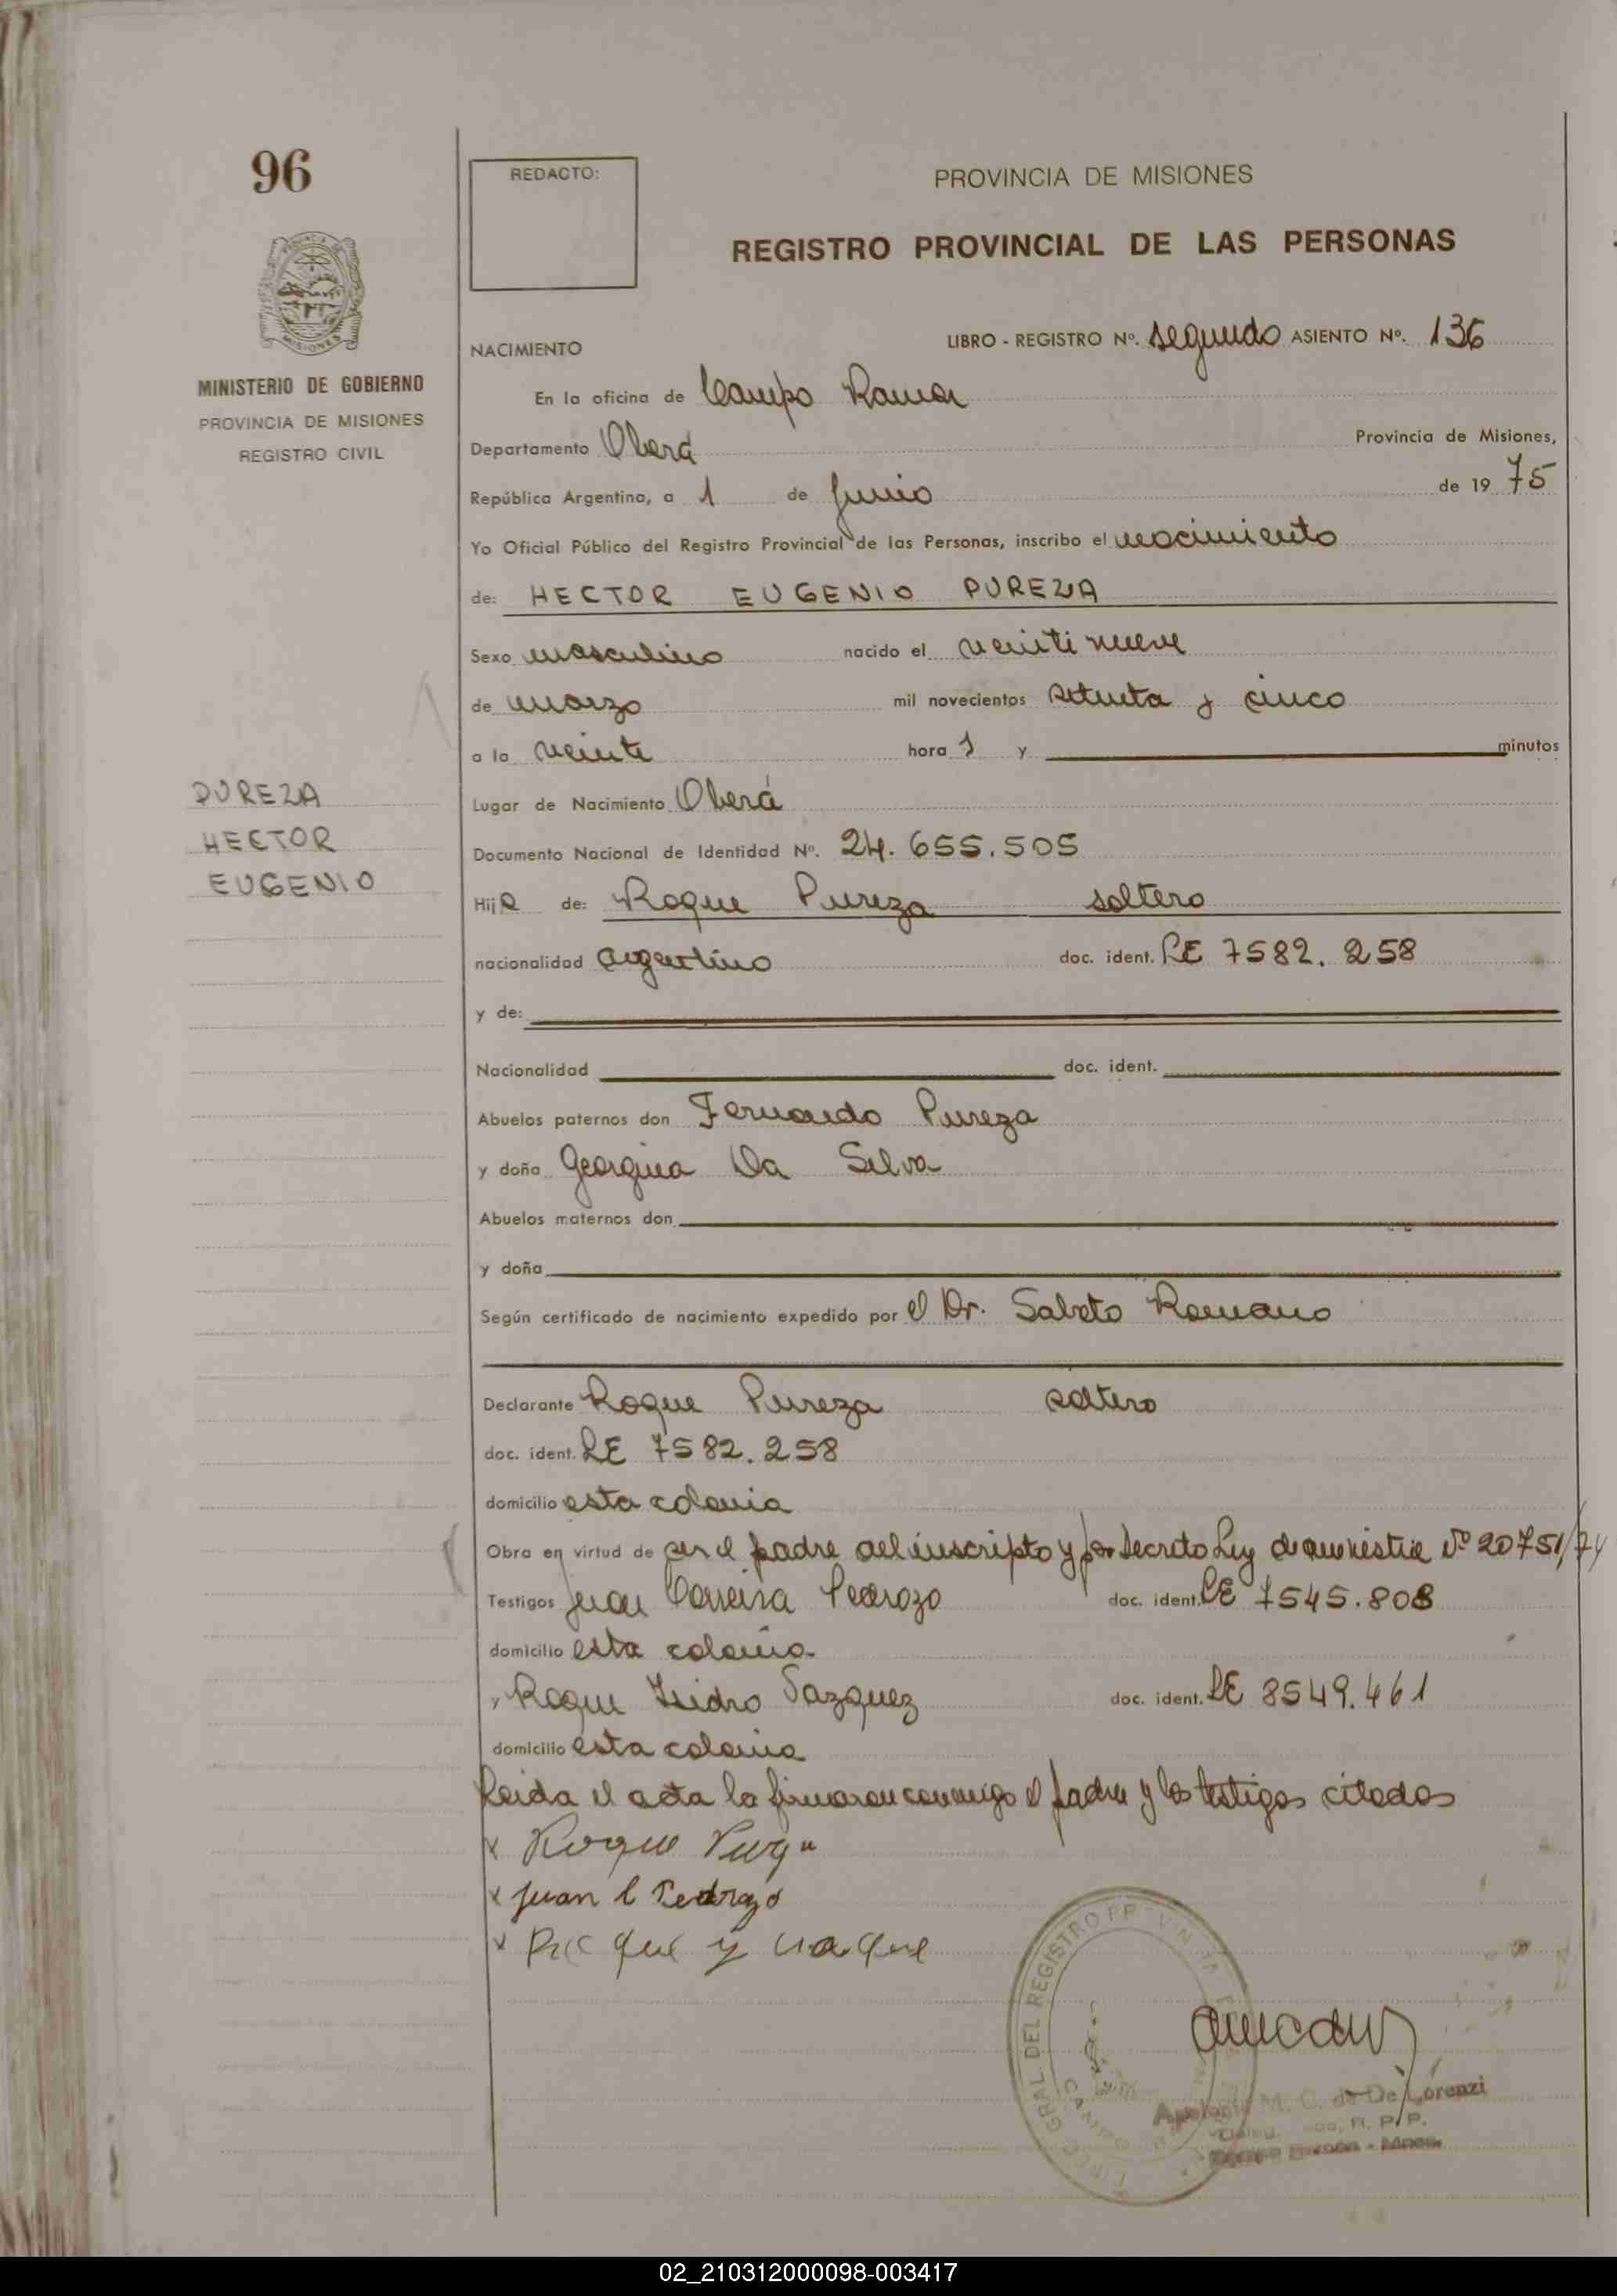 96
REDACTO:
PROVINCIA DE MISIONES
REGISTRO PROVINCIAL DE LAS PERSONAS
MISIONES
MINISTERIO DE GOBIERNO
PROVINCIA DE MISIONES
REGISTRO CIVIL
NACIMIENTO
LIBRO - REGISTRO Nº. segundo ASIENTO Nº. 136
En la oficina de Campo Ramon
Departamento Oberá Provincia de Misiones,
República Argentina, a 1 de Junio de 19 75
Yo Oficial Público del Registro Provincial de las Personas, inscribo el nacimiento
de: HECTOR EUGENIO PUREZA
Sexo masculino nacido el veinti nueve
de marzo mil novecientos setenta y cinco
a la veinte hora s y minutos
PUREZA
HECTOR
EUGENIO
Lugar de Nacimiento Oberá
Documento Nacional de Identidad Nº. 24.655.505
Hijo de: Roque Pureza soltero
nacionalidad argentino doc. ident. LE 7582.258
y de:
Nacionalidad doc. ident.
Abuelos paternos don Fernando Pureza
y doña Georgina Da Silva
Abuelos maternos don
y doña
Según certificado de nacimiento expedido por el Dr. Sabeto Romano
Declarante Roque Pureza soltero
doc. ident. LE 7582.258
domicilio esta colonia
Obra en virtud de ser el padre del inscripto y por Decreto Ley de amnistia Nº 20751/74
Testigos Juan Correira Pedrozo doc. ident. LE 7545.808
domicilio esta colonia
y Roque Isidro Vazquez doc. ident. LE 8549.461
domicilio esta colonia
Leida el acta la firmaron conmigo el padre y los testigos citados
x Roque
x Juan C Pedrozo
x
GRAL DEL REGISTRO
M. C. de De Lorenzi
R. P. P.
02_210312000098-003417